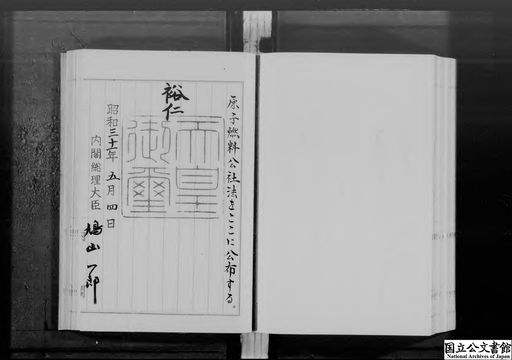 原子燃料公社法をここに公布する。
裕仁
天皇
御璽
昭和三十一年五月四日
内閣総理大臣 鳩山一郎
国立公文書館
National Archives of Japan